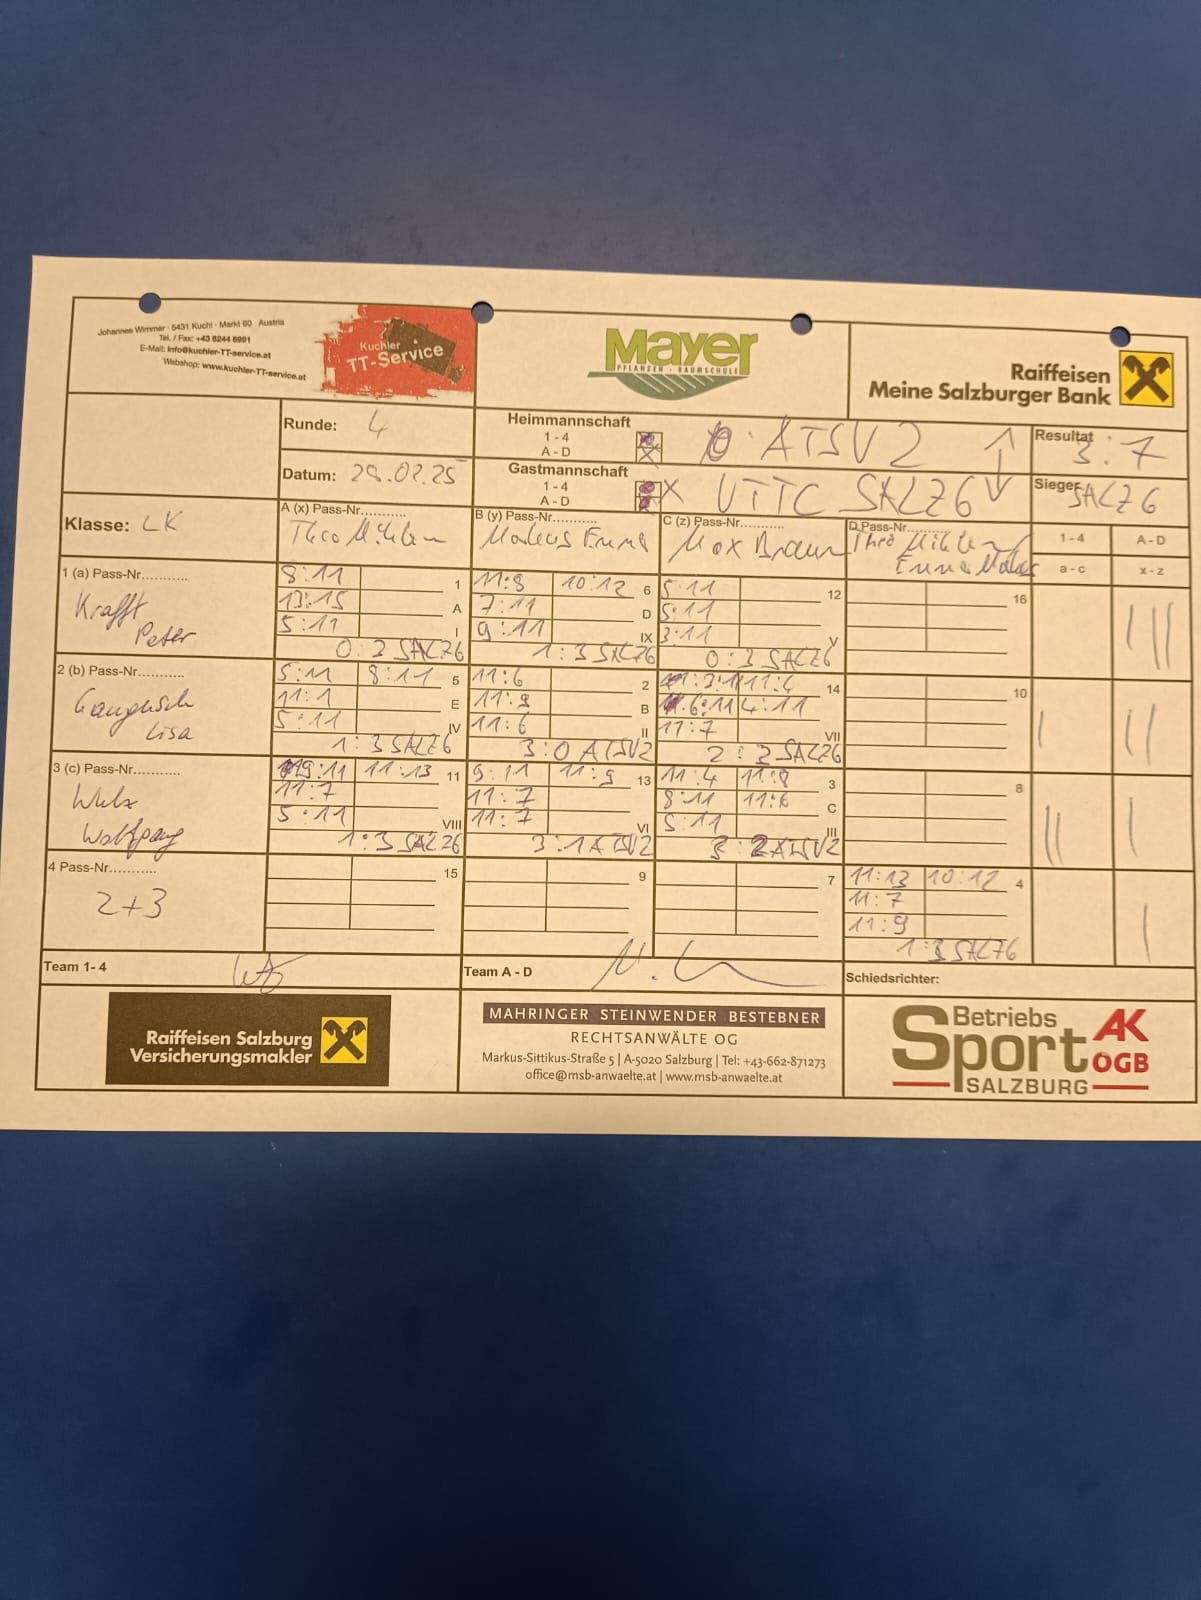 Johannes Wimmer · 5431 Kuchl · Markt 60 Austria
Tel. / Fax: +43 6244 6991
E-Mail: info@kuchler-TT-service.at
Webshop: www.kuchler-TT-service.at
Kuchler
TT-Service
Mayer
PFLANZEN · BAUMSCHULE
Raiffeisen
Meine Salzburger Bank
Runde: 4
Heimmannschaft
1 - 4
A - D
ATSV 2
Resultat
3:7
Datum:
Gastmannschaft
1 - 4
A - D
X UTTC SALZ6
Sieger SALZ6
Klasse: LK
A (x) Pass-Nr...........
Theo
B (y) Pass-Nr...........
Markus
C (z) Pass-Nr...........
Max Braun
D Pass-Nr...........
Emma
1 - 4
A - D
a - c
x - z
1 (a) Pass-Nr...........
Krafft
Peter
8:11
13:15
5:11
1
A
I
SALZ6
11:8 10:12
7:11
9:11
6
D
IX
1:3 SALZ6
5:11
5:11
3:11
12
V
0:3 SALZ6
16
2 (b) Pass-Nr...........
Lisa
5:11 8:11
11:1
5:11
5
E
IV
1:3 SALZ6
11:6
11:9
11:6
2
B
II
3:0 ATSV2
11:4
6:11 4:11
11:7
14
VII
SALZ6
10
3 (c) Pass-Nr...........
Welz
Wolfgang
9:11 11:13
11:7
5:11
11
VIII
1:3 SALZ6
9:11 11:9
11:7
11:7
13
VI
3:1 ATSV2
11:4 11:8
8:11 11:6
5:11
3
C
III
3:2 ATSV2
8
4 Pass-Nr...........
2+3
15
9
7
11:13 10:12
11:7
11:9
4
1:3 SALZ6
Team 1- 4
Team A - D
Schiedsrichter:
Raiffeisen Salzburg
Versicherungsmakler
MAHRINGER STEINWENDER BESTEBNER
RECHTSANWÄLTE OG
Markus-Sittikus-Straße 5 | A-5020 Salzburg | Tel: +43-662-871273
office@msb-anwaelte.at | www.msb-anwaelte.at
Betriebs
Sport
SALZBURG
AK
ÖGB